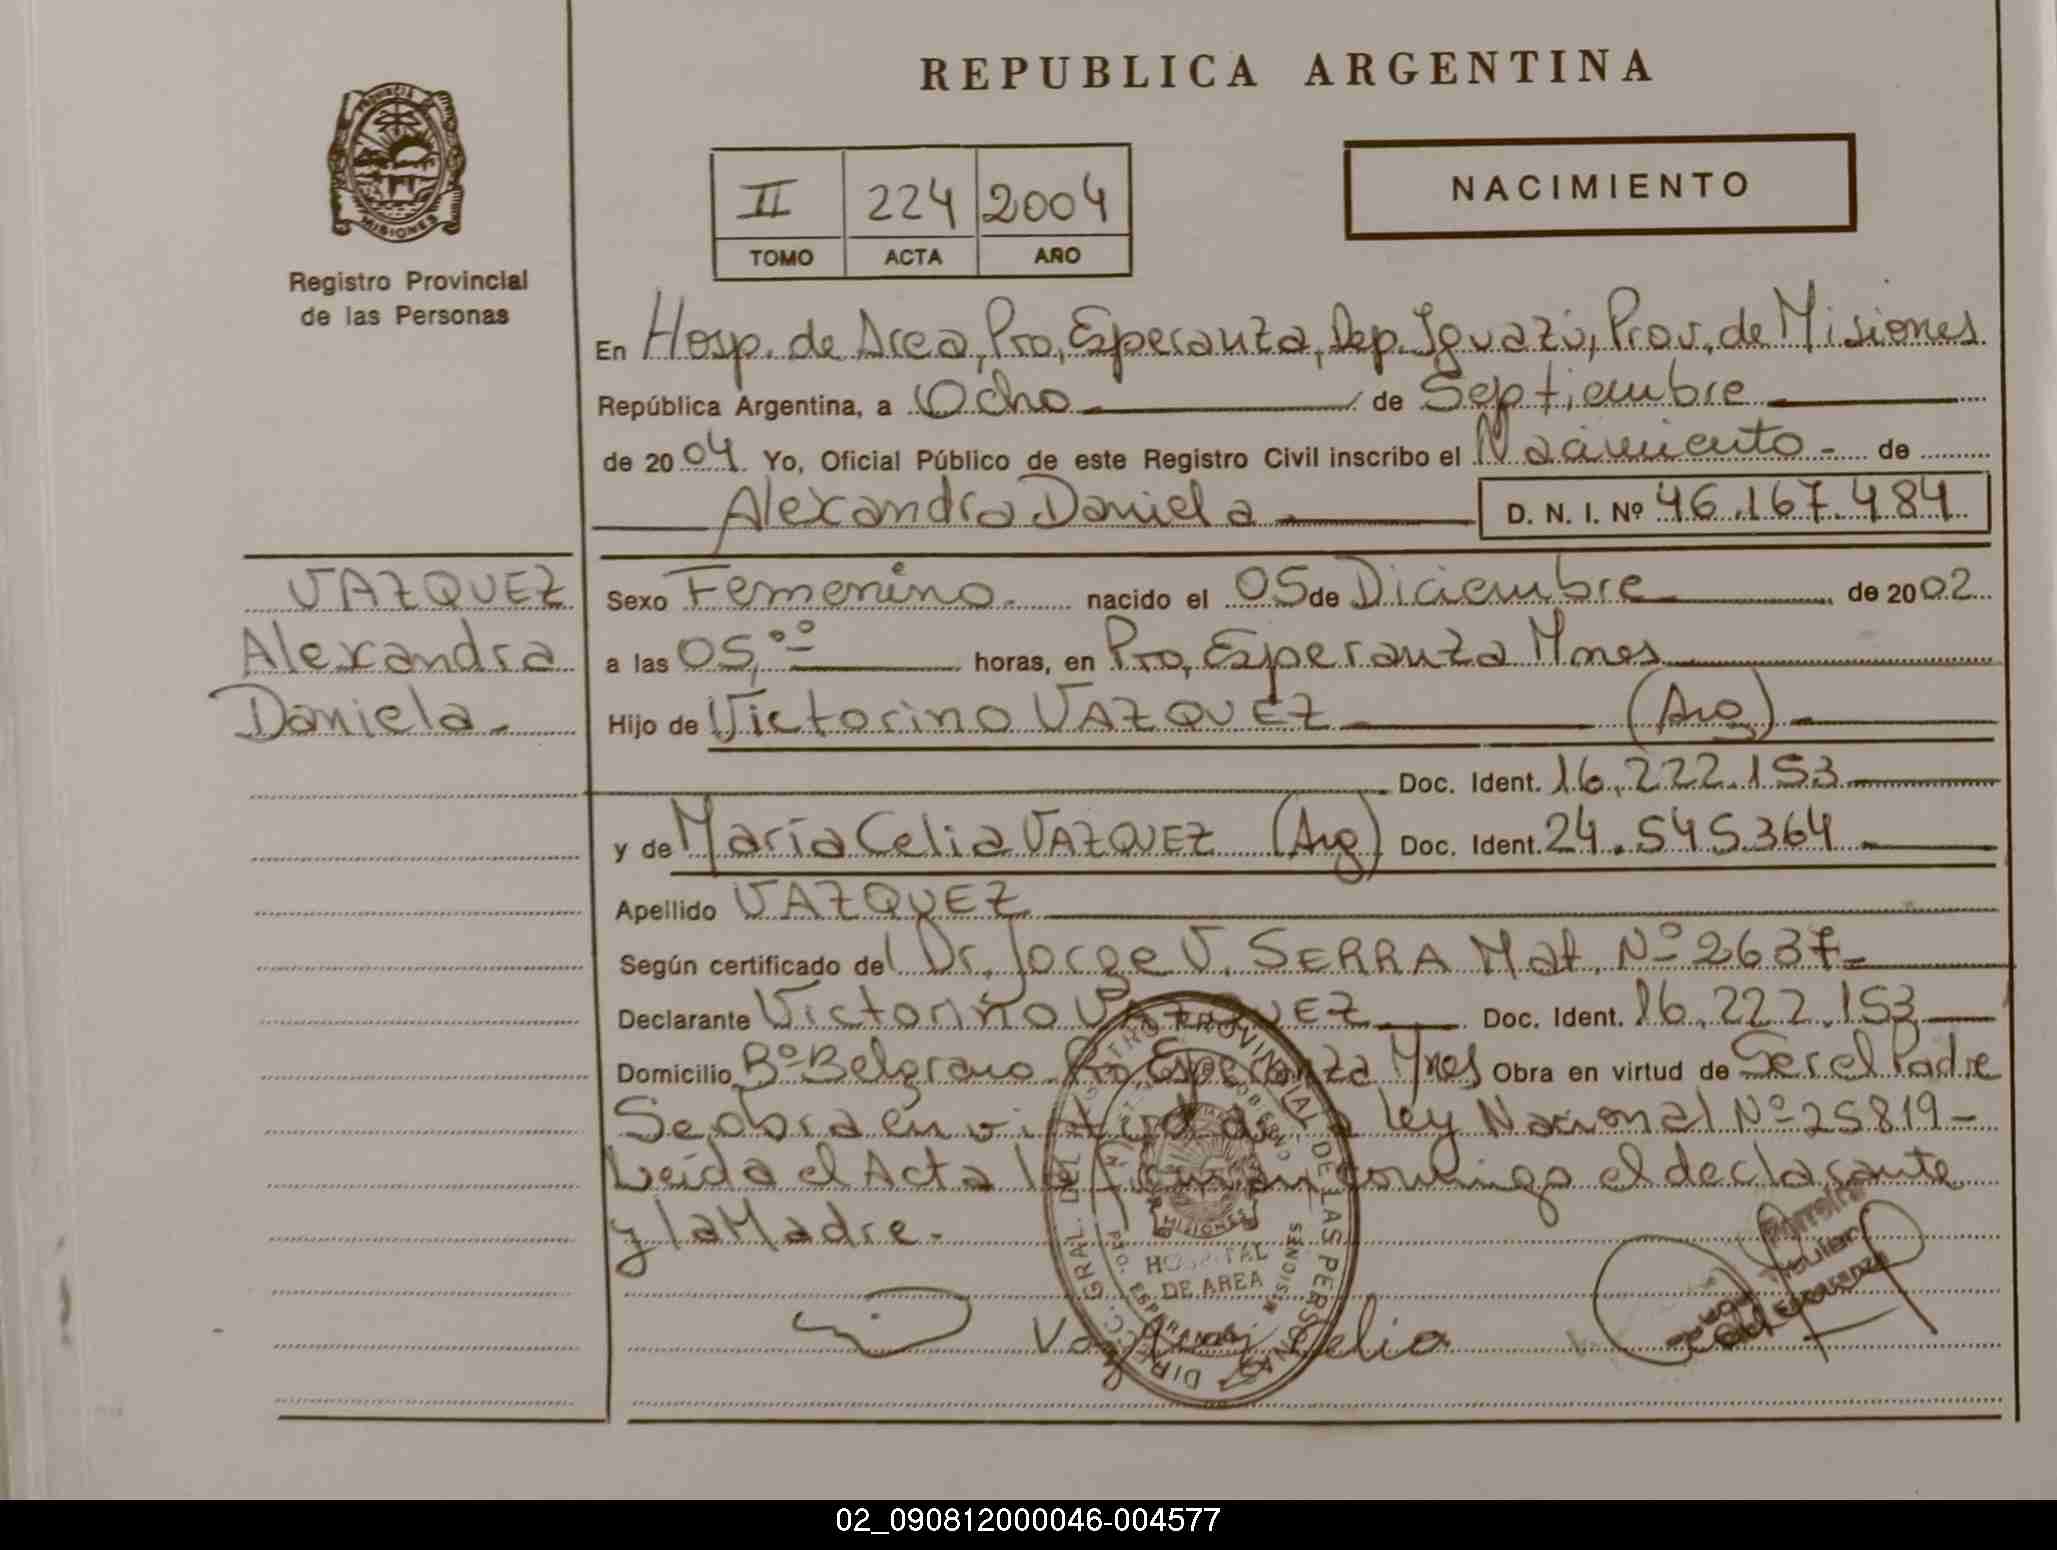 REPUBLICA ARGENTINA
PROVINCIA DE
MISIONES
Registro Provincial
de las Personas
II 224 2004
TOMO ACTA AÑO
NACIMIENTO
En Hosp. de Area, Pto, Esperanza, Dep. Iguazú, Prov. de Misiones
República Argentina, a Ocho de Septiembre
de 2004 Yo, Oficial Público de este Registro Civil inscribo el Nacimiento - de
Alexandra Daniela D. N. I. Nº 46.167.484
VAZQUEZ
Alexandra
Daniela.
Sexo Femenino. nacido el 05 de Diciembre de 2002
a las 05,ºº horas, en Pto, Esperanza Mnes
Hijo de Victorino VAZQUEZ (Arg)
Doc. Ident. 16.222.153
y de María Celia VAZQUEZ (Arg) Doc. Ident. 24.545.364
Apellido VAZQUEZ
Según certificado del Dr. Jorge V. SERRA Mat. Nº 2637-
Declarante Victorino VAZQUEZ Doc. Ident. 16.222.153
Domicilio Bº Belgrano Pto Esperanza Mnes Obra en virtud de Ser el Padre
Se obra en virtud de la ley Nacional Nº 25819-
Leída el Acta la firman conmigo el declarante
y la Madre.
DIRECC. GRAL. DEL REGISTRO PROVINCIAL DE LAS PERSONAS
MISIONES
HOSPITAL
DE AREA
PTO. ESPERANZA MISIONES
Vazquez Celia
Titular
02_090812000046-004577